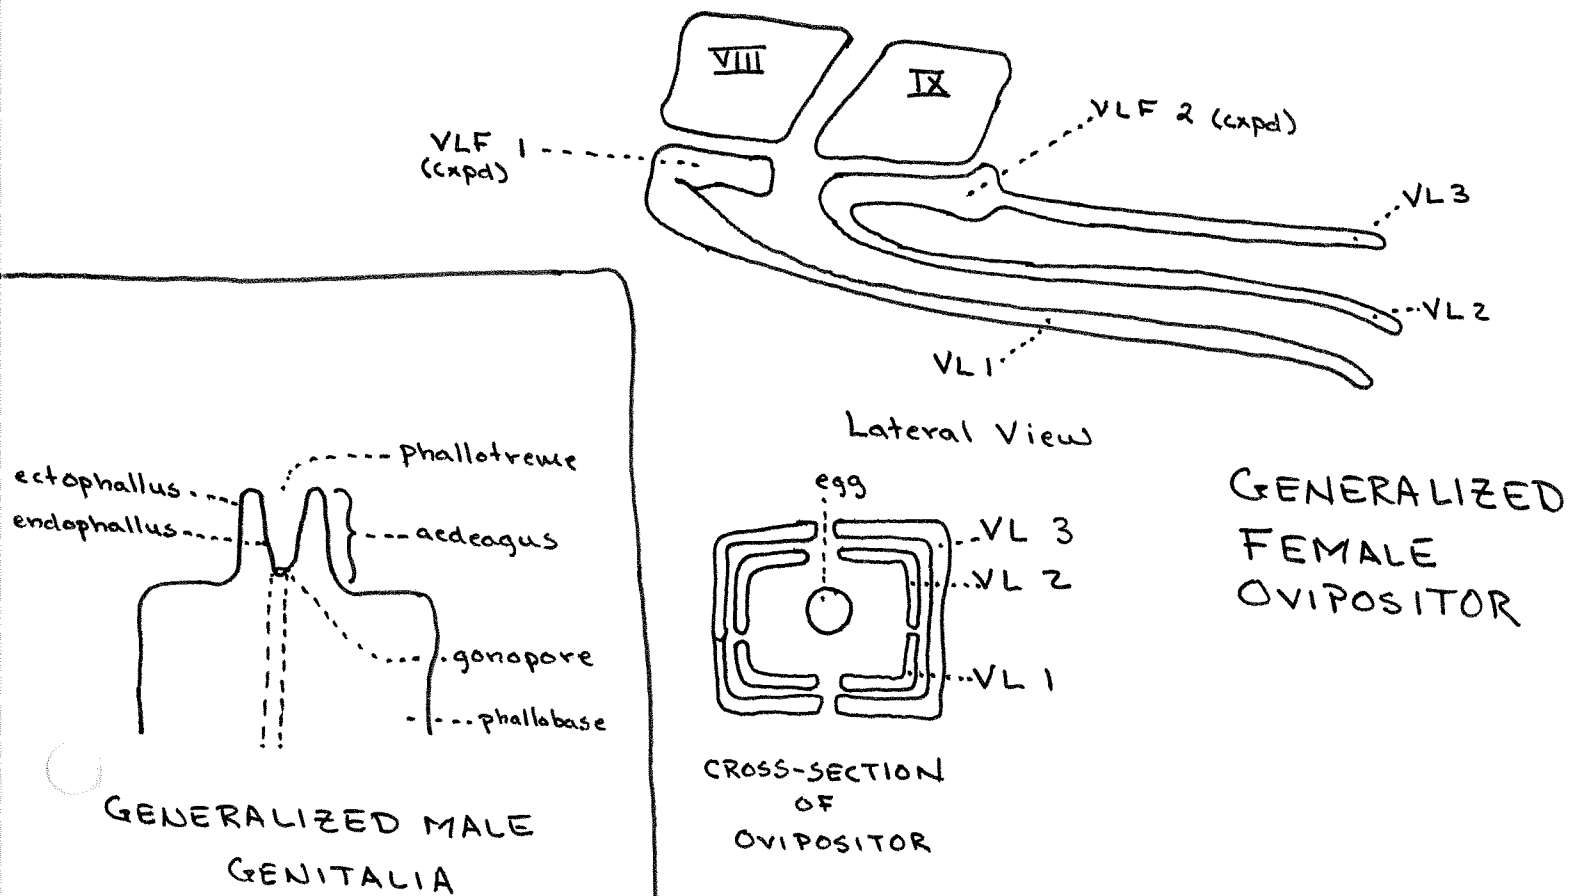 VIII
IX
VLF 1
(cxpd)
VLF 2 (cxpd)
VL3
VL2
VL1
Lateral View
GENERALIZED
FEMALE
OVIPOSITOR
egg
VL 3
VL 2
VL 1
CROSS-SECTION
OF
OVIPOSITOR
phallotreme
ectophallus
endophallus
aedeagus
gonopore
phallobase
GENERALIZED MALE
GENITALIA